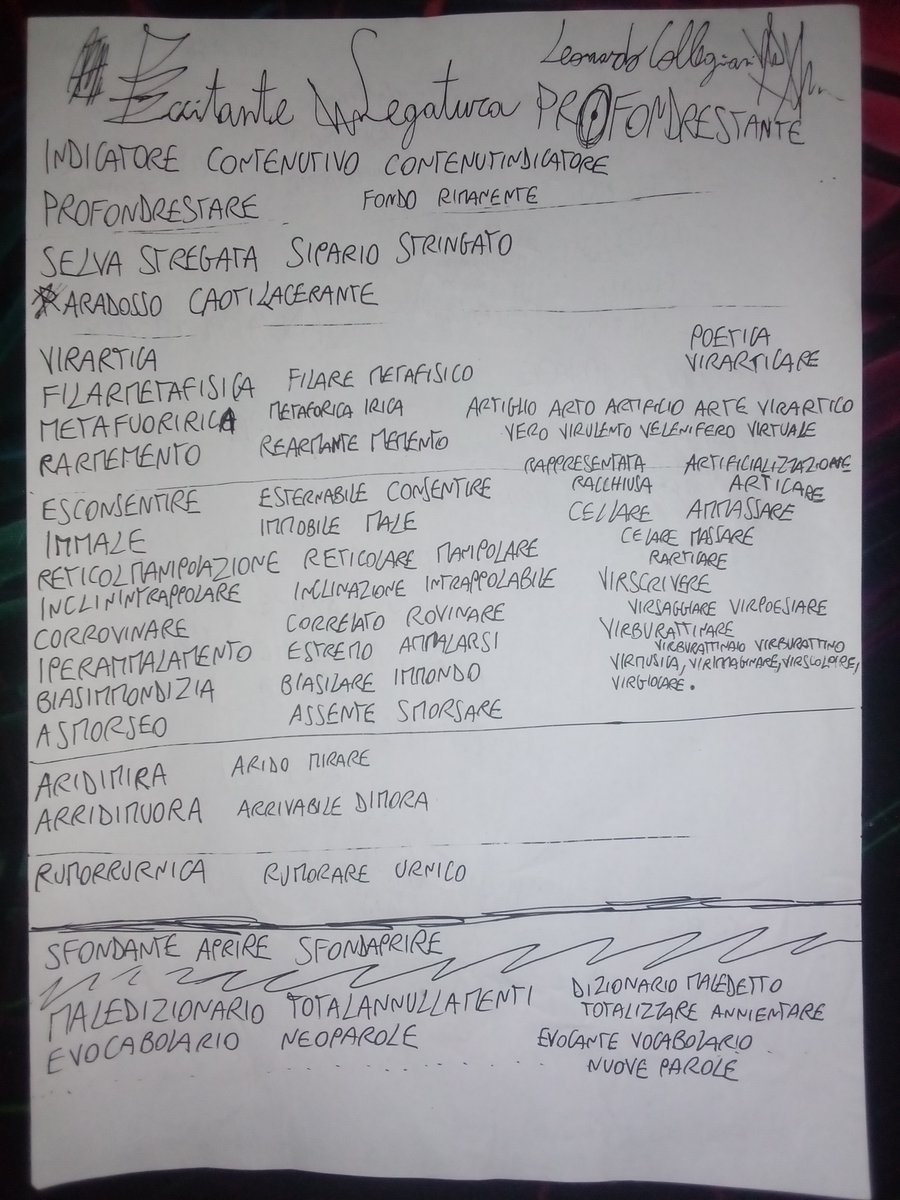 Leonardo Collegiani
Legatura PROFONDRESTANTE
INDICATORE CONTENUTIVO CONTENUTINDICATORE
PROFONDRESTARE FONDO RIMANENTE
SELVA STREGATA SIPARIO STRINGATO
PARADOSSO CAOTILACERANTE
VIRARTICA
FILARMETAFISICA FILARE METAFISICO
METAFUORIRICA METAFORICA IRICA
RARMEMENTO REARMANTE MEMENTO
POETICA
VIRARTICARE
ARTIGLIO ARTO ARTIFICIO ARTE VIRARTICO
VERO VIRULENTO VELENIFERO VIRTUALE
ESCONSENTIRE ESTERNABILE CONSENTIRE
IMMALE IMMOBILE MALE
RETICOLMANIPOLAZIONE RETICOLARE MANIPOLARE
INCLININTRAPPOLARE INCLINAZIONE INTRAPPOLABILE
CORROVINARE CORRELATO ROVINARE
IPERAMMALAMENTO ESTREMO AMMALARSI
BIASIMMONDIZIA BIASILARE IMMONDO
ASMORSEO ASSENTE SMORSARE
RAPPRESENTATA ARTIFICIALIZZAZIONE
RACCHIUSA ARTICARE
CELLARE AMMASSARE
CELARE MASSARE
RARTICARE
VIRSCRIVERE
VIRSAGGIARE VIRPOESIARE
VIRBURATTINARE
VIRBURATTINAIO VIRBURATTINO
VIRMUSICA, VIRIMAGINARE, VIRSCOLPIRE,
VIRGIOCARE.
ARIDIMIRA ARIDO MIRARE
ARRIDIMUORA ARRIVABILE DIMORA
RUMORRURNICA RUMORARE URNICO
SFONDANTE APRIRE SFONDAPRIRE
MALEDIZIONARIO TOTALANNULLAMENTI DIZIONARIO MALEDETTO
TOTALIZZARE ANNIENTARE
EVOCABOLARIO NEOPAROLE EVOCANTE VOCABOLARIO
NUOVE PAROLE